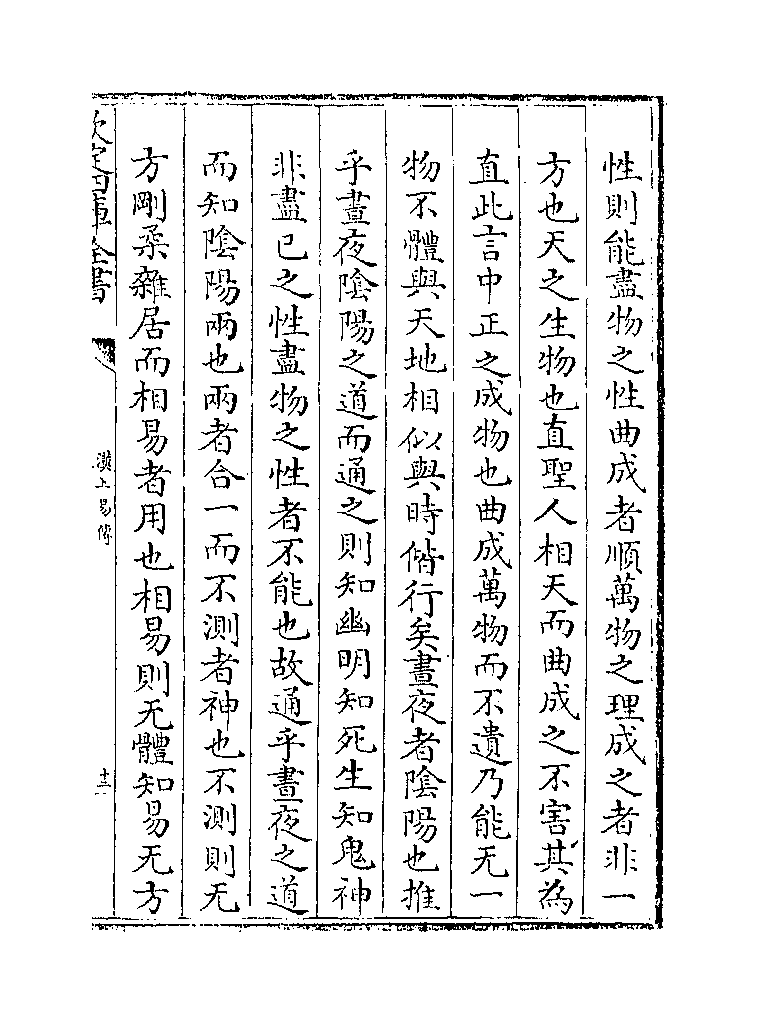 性則能盡物之性曲成者順萬物之理成之者非一
方也天之生物也直聖人相天而曲成之不害其為
直此言中正之成物也曲成萬物而不遺乃能无一
物不體與天地相似與時偕行矣晝夜者陰陽也推
乎晝夜陰陽之道而通之則知幽明知死生知鬼神
非盡已之性盡物之性者不能也故通乎晝夜之道
而知陰陽兩也兩者合一而不測者神也不測則无
方剛柔雜居而相易者用也相易則无體知易无方
欽定四庫全書
漢上易傳
十二